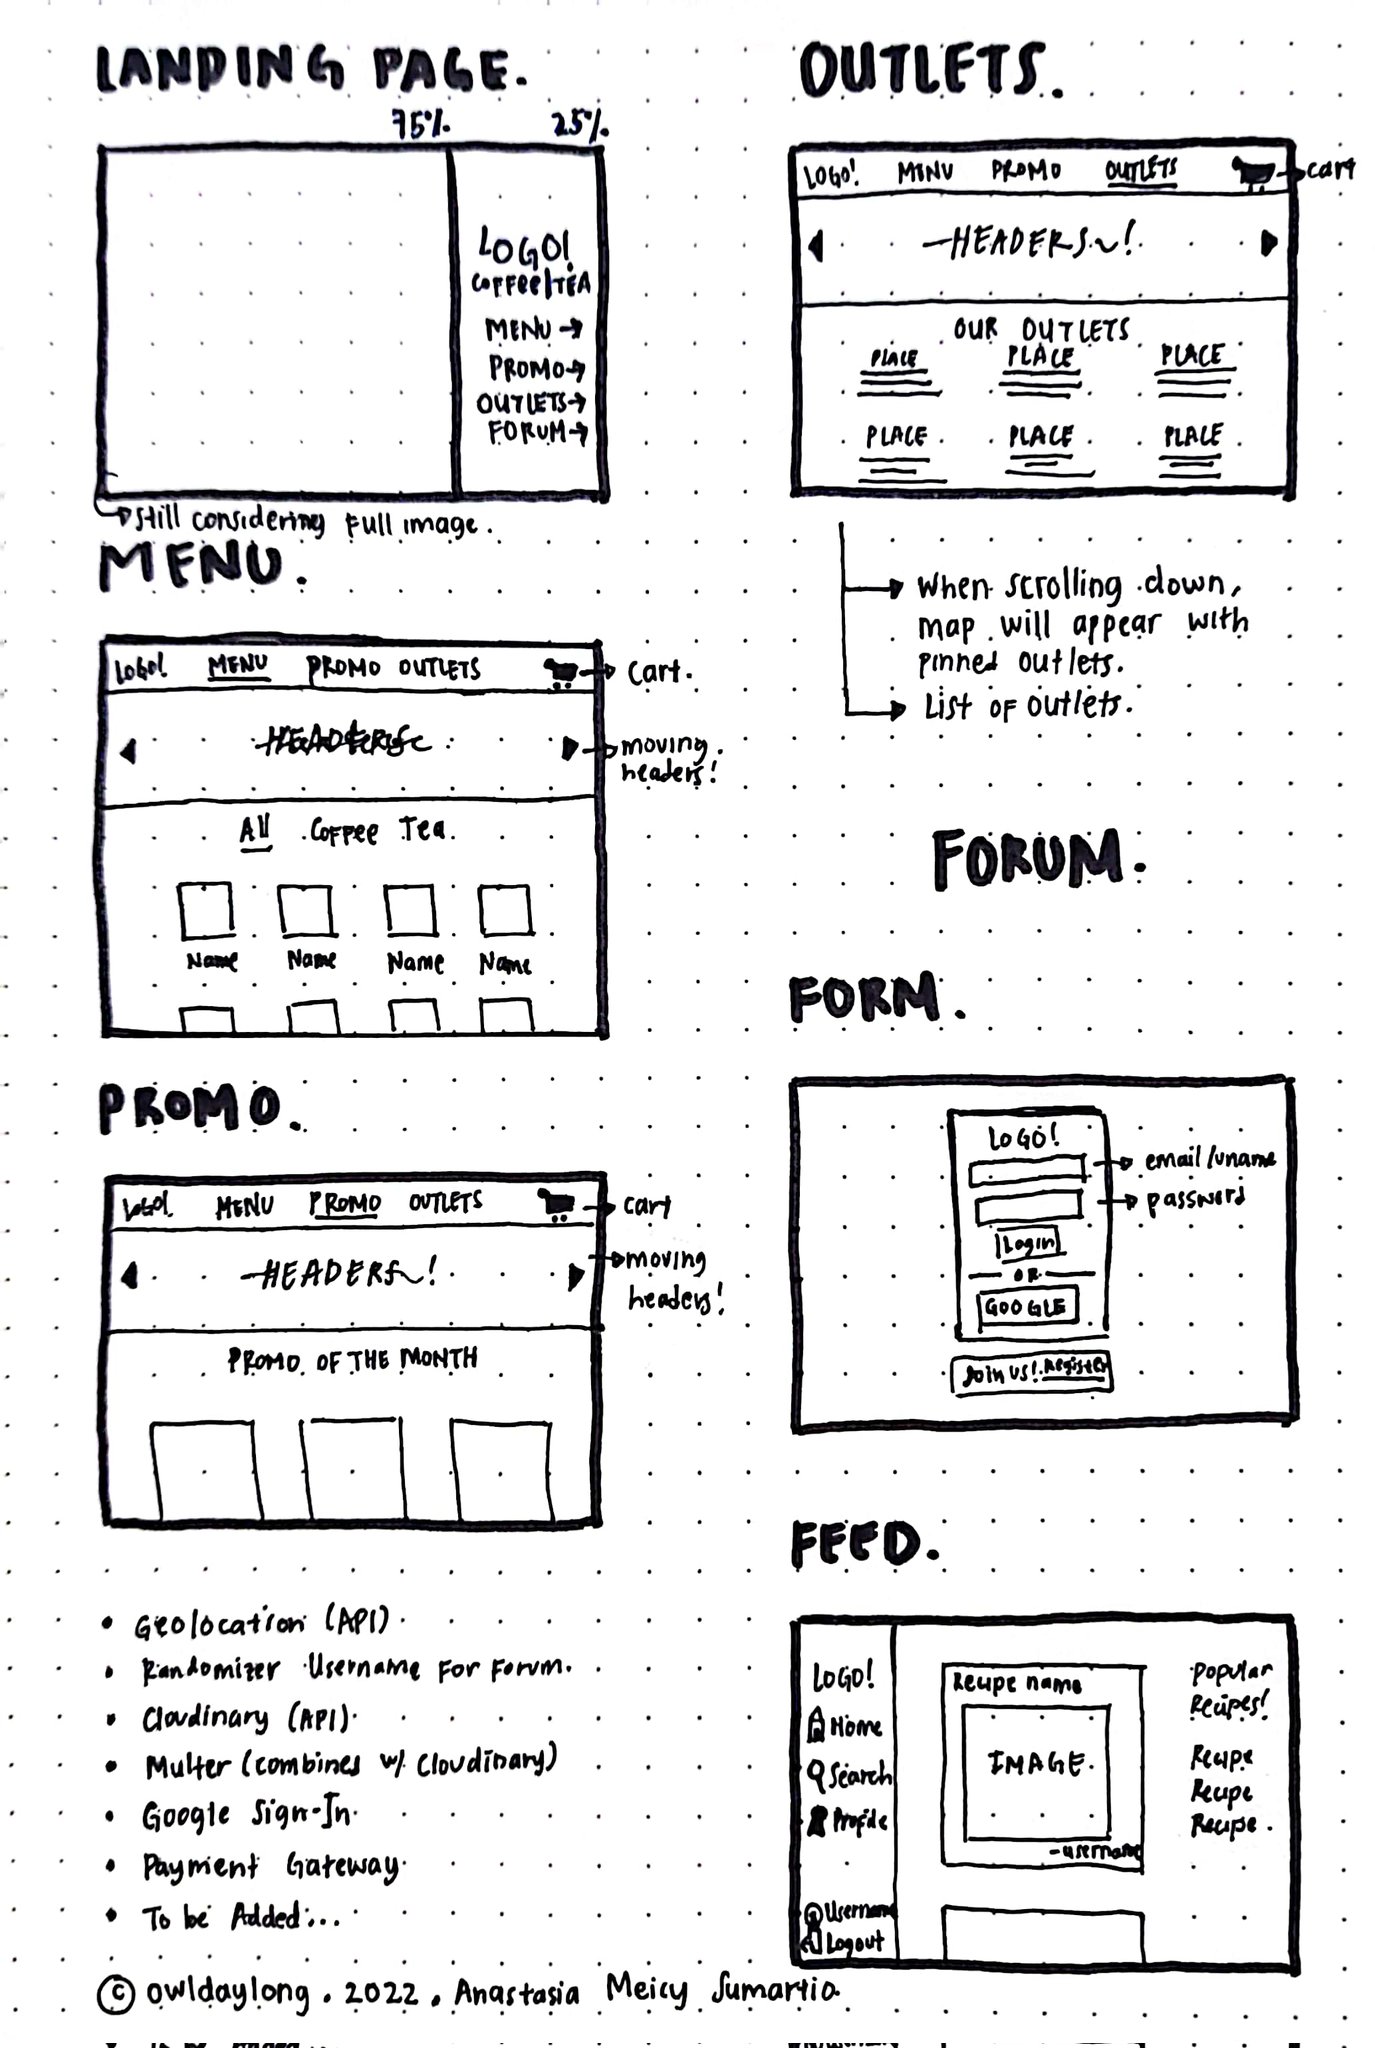 LANDING PAGE.
75%. 25%.
LOGO!
COFFEE|TEA
MENU →
PROMO→
OUTLETS→
FORUM→
still considering full image.
MENU.
LOGO! MENU PROMO OUTLETS
cart.
HEADERS
moving
headers!
All Coffee Tea.
Name Name Name Name
PROMO.
LOGO! MENU PROMO OUTLETS
cart
HEADERS~!
moving
headers!
PROMO OF THE MONTH
• Geolocation (API)
• Randomizer Username For Forum.
• Cloudinary (API)
• Multer (combines w/ Cloudinary)
• Google Sign-In
• Payment Gateway
• To be Added...
OUTLETS.
LOGO! MENU PROMO OUTLETS
cart
HEADERS~!
OUR OUTLETS
PLACE PLACE PLACE
PLACE PLACE PLACE
When scrolling down,
map will appear with
pinned outlets.
List of outlets.
FORUM.
FORM.
LOGO!
email/uname
password
Login
OR
GOOGLE
Join us! Register
FEED.
LOGO!
Home
Search
Profile
Username
Logout
Recipe name
IMAGE.
-username
Popular
Recipes!
Recipe
Recipe
Recipe.
© owldaylong. 2022. Anastasia Meicy Sumartio.